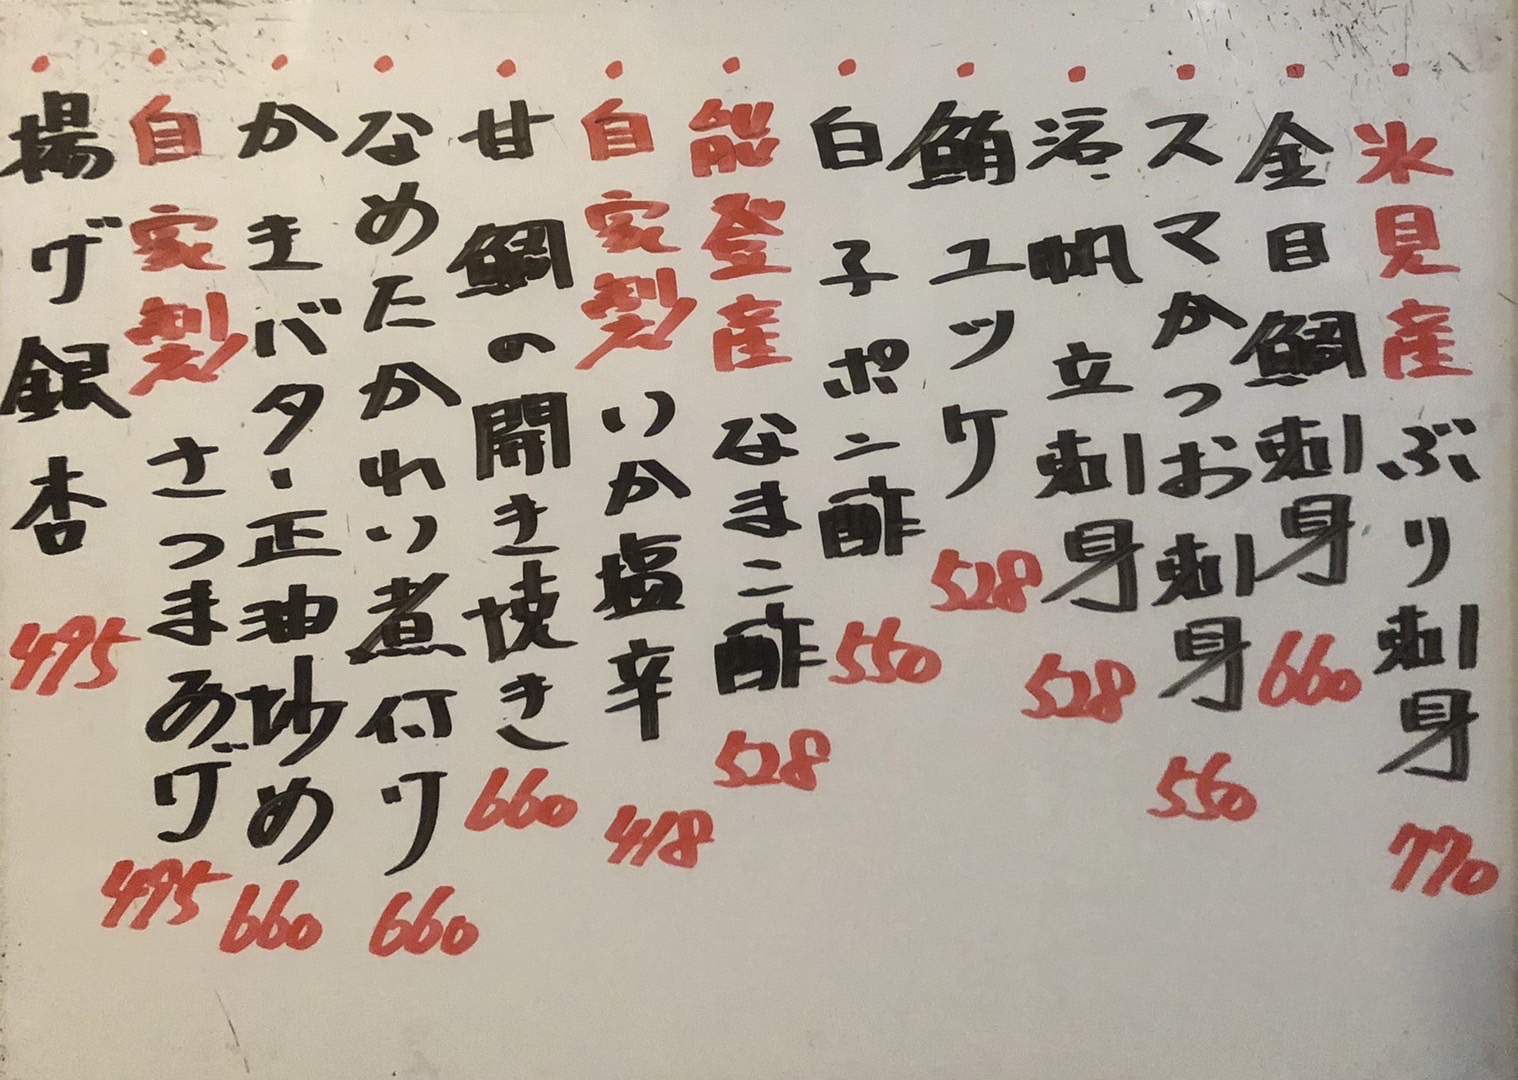 ・氷見産 ぶり刺身 770
・金目鯛刺身 660
・スマかつお刺身 550
・活帆立刺身 528
・鮪ユッケ 528
・白子ポン酢 550
・能登産 なまこ酢 528
・自家製 いか塩辛 418
・甘鯛の開き焼き 660
・なめたかれい煮付け 660
・かきバター正油炒め 660
・自家製 さつまあげ 495
・揚げ銀杏 495